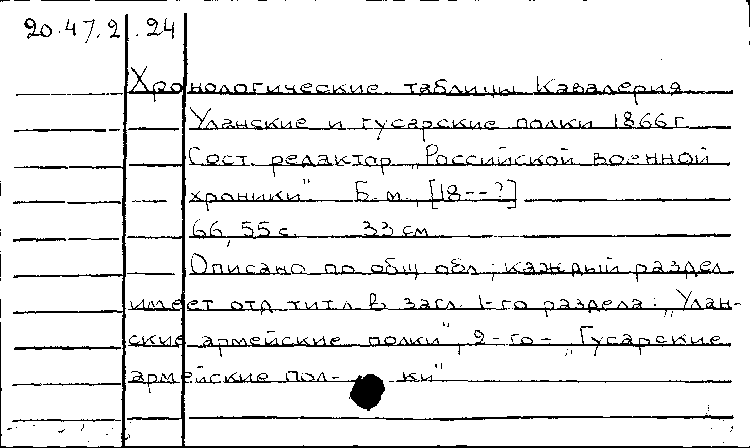 20.47.2.24
Хронологические таблицы Кавалерия
Уланские и гусарские полки 1866 г.
Сост. редактор „Российской военной
хроники". Б. м., [18--?]
66, 55 с. 33 см
Описано по общ. обл.; каждый раздел
имеет отд. тит. л. В загл. 1-го раздела: „Улан-
ские армейские полки", 2-го - „Гусарские
армейские пол- ки"